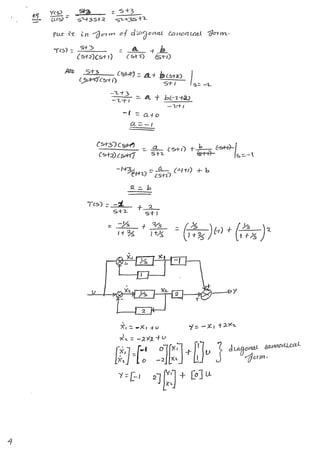 Y(s)/U(s) = s+3/s²+3s+2 = s+3/s²+3s+2
Put it in form of diagonal canonical form.
T(s) = s+3/(s+2)(s+1) = a/(s+2) + b/(s+1)
s+3/(s+2)(s+1) (s+2) = a + b(s+2)/s+1 | s=-2
-2+3/-2+1 = a + b(-2+2)/-2+1
-1 = a+0
a = -1
(s+3)(s+1)/(s+2)(s+1) = a/s+2 (s+1) + b/(s+1) (s+1) | s=-1
-1+3/(-1+2) = a/(s+1) (-1+1) + b
2 = b
T(s) = -1/s+2 + 2/s+1
= -1/s/1+2/s + 2/s/1+1/s = (1/s/1+2/s)(-1) + (1/s/1+1/s)2
Ẋ₁ 1/s X₁ -1
1
U Ẋ₂ 1/s X₂ 2 Y
2
Ẋ₁ = -X₁ + u Y = -X₁ + 2X₂
Ẋ₂ = -2X₂ + u
[Ẋ₁ Ẋ₂] = [-1 0 0 -2] [X₁ X₂] + [1 1] u } diagonal canonical form.
Y = [-1 2] [X₁ X₂] + [0] u
4